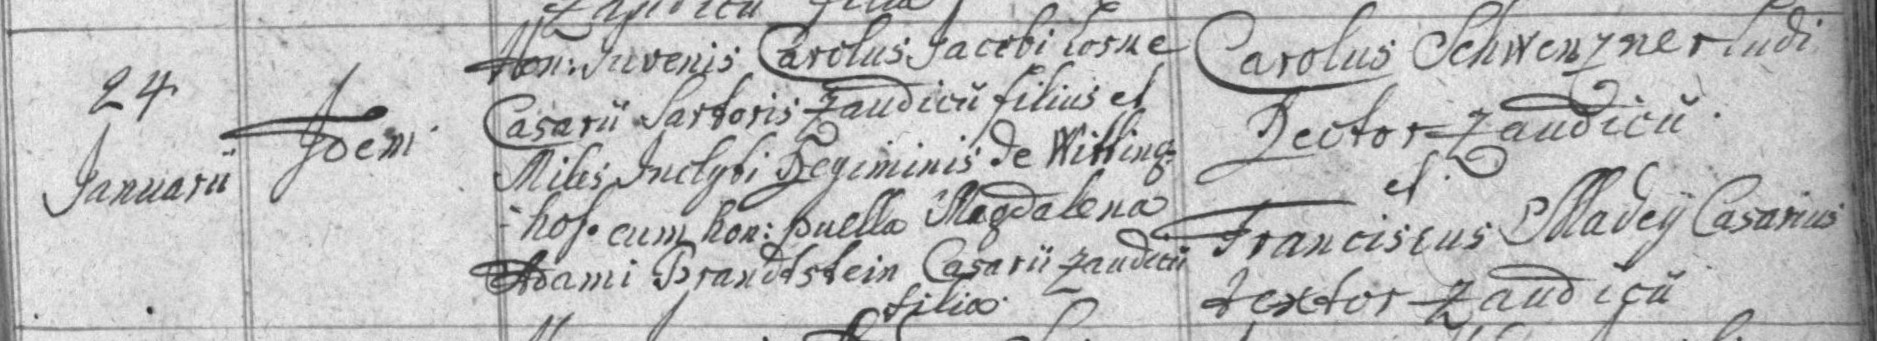 24
Januarii
Idem
Zaudicii filia
Hon: Juvenis Carolus Jacobi Cosne
Casarii Sartoris Zaudicii filius et
Miles Inclyti Regiminis de Witting-
-hof. cum hon: puella Magdalena
Adami Brandtstein Casarii Zaudicii
filia.
Carolus Schwenzner Ludi
Rector Zaudicii.
et
Franciscus Madeÿ Casarius
textor Zaudicii